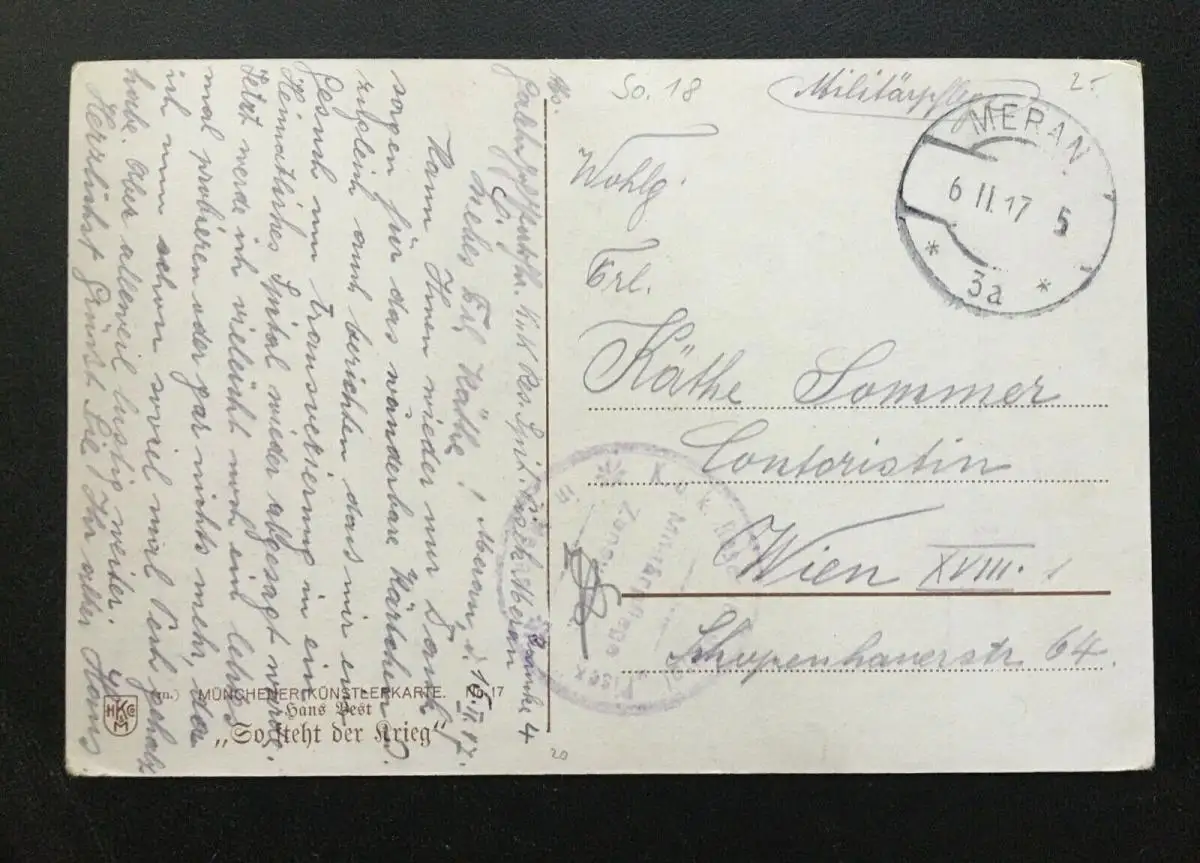 So. 18
Militärpflege
25.
MERAN
6 II. 17 5
* 3a *
Wohlg.
Frl.
Käthe Sommer
Contoristin
Wien XVIII. 1
Schopenhauerstr 64.
K. u. k.
Militärpflege
in
Abs.
K.u.K. Res. Spit.
Meran
Baracke 4
Meran, d. 5. II. 17.
Liebes Frl. Käthe!
Kann Ihnen wieder nur Dank
sagen für das wunderbare Kärtchen u.
zugleich auch berichten das mir ein
Gesuch um Transverierung in ein
Heimatliches Spital wieder abgesagt wurde.
Jetzt werde ich vieleicht noch ein letztes
mal probieren oder gar nichts mehr, da
ich nun schon soviel mal Pech gehabt
habe. Aber allweil lustig weiter.
Herzlichst Grüsst Sie Ihr alter Hans
HKCoM
(m.) MÜNCHENER KÜNSTLERKARTE. No. 17
Hans Best
„So steht der Krieg“
20